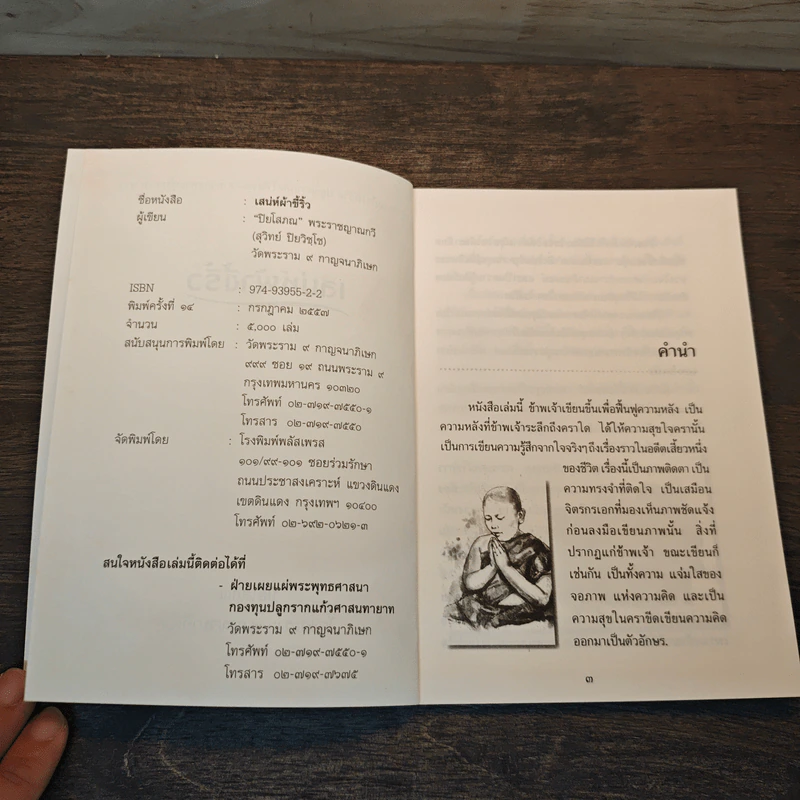 ชื่อหนังสือ : เสน่ห์ผ้าขี้ริ้ว
ผู้เขียน : "ปิยโสภณ" พระราชญาณกวี
(สุวิทย์ ปิยวิชฺโช)
วัดพระราม ๙ กาญจนาภิเษก
ISBN : 974-93955-2-2
พิมพ์ครั้งที่ ๑๔ : กรกฎาคม ๒๕๕๗
จำนวน : ๕,๐๐๐ เล่ม
สนับสนุนการพิมพ์โดย : วัดพระราม ๙ กาญจนาภิเษก
๙๙๙ ซอย ๑๙ ถนนพระราม ๙
กรุงเทพมหานคร ๑๐๓๒๐
โทรศัพท์ ๐๒-๗๑๙-๗๕๕๐-๑
โทรสาร ๐๒-๗๑๙-๗๕๕๐
จัดพิมพ์โดย : โรงพิมพ์พลัสเพรส
๑๐๑/๙๙-๑๐๑ ซอยร่วมรักษา
ถนนประชาสงเคราะห์ แขวงดินแดง
เขตดินแดง กรุงเทพฯ ๑๐๔๐๐
โทรศัพท์ ๐๒-๖๙๒-๐๖๒๑-๓
สนใจหนังสือเล่มนี้ติดต่อได้ที่
- ฝ่ายเผยแผ่พระพุทธศาสนา
กองทุนปลูกรากแก้วศาสนทายาท
วัดพระราม ๙ กาญจนาภิเษก
โทรศัพท์ ๐๒-๗๑๙-๗๕๕๐-๑
โทรสาร ๐๒-๗๑๙-๗๖๗๕
คำนำ
หนังสือเล่มนี้ ข้าพเจ้าเขียนขึ้นเพื่อฟื้นฟูความหลัง เป็น
ความหลังที่ข้าพเจ้าระลึกถึงคราใด ได้ให้ความสุขใจครานั้น
เป็นการเขียนความรู้สึกจากใจจริงๆถึงเรื่องราวในอดีตเสี้ยวหนึ่ง
ของชีวิต เรื่องนี้เป็นภาพติดตา เป็น
ความทรงจำที่ติดใจ เป็นเสมือน
จิตรกรเอกที่มองเห็นภาพชัดแจ้ง
ก่อนลงมือเขียนภาพนั้น สิ่งที่
ปรากฏแก่ข้าพเจ้า ขณะเขียนก็
เช่นกัน เป็นทั้งความ แจ่มใสของ
จอภาพ แห่งความคิด และเป็น
ความสุขในคราขีดเขียนความคิด
ออกมาเป็นตัวอักษร.
๓